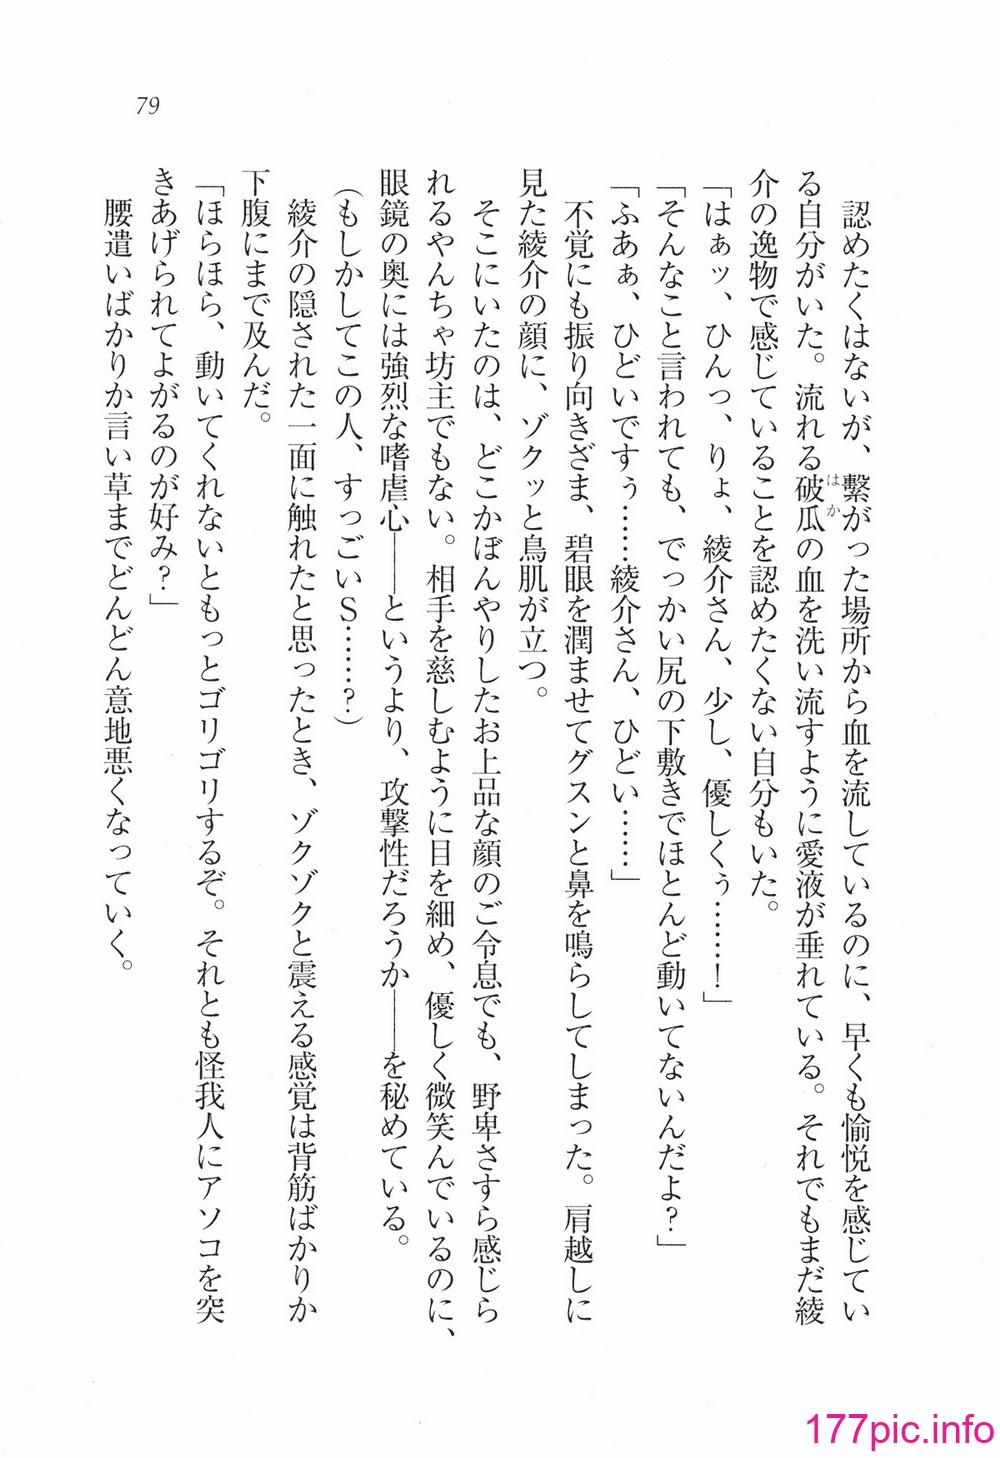 79
認めたくはないが、繋がった場所から血を流しているのに、早くも愉悦を感じてい
る自分がいた。流れる破瓜の血を洗い流すように愛液が垂れている。それでもまだ綾
はか
介の逸物で感じていることを認めたくない自分もいた。
「はぁッ、ひんっ、りょ、綾介さん、少し、優しくぅ……！」
「そんなこと言われても、でっかい尻の下敷きでほとんど動いてないんだよ？」
「ふあぁ、ひどいですぅ……綾介さん、ひどい……」
不覚にも振り向きざま、碧眼を潤ませてグスンと鼻を鳴らしてしまった。肩越しに
見た綾介の顔に、ゾクッと鳥肌が立つ。
そこにいたのは、どこかぼんやりしたお上品な顔のご令息でも、野卑さすら感じら
れるやんちゃ坊主でもない。相手を慈しむように目を細め、優しく微笑んでいるのに、
眼鏡の奥には強烈な嗜虐心――というより、攻撃性だろうか――を秘めている。
（もしかしてこの人、すっごいS……？）
綾介の隠された一面に触れたと思ったとき、ゾクゾクと震える感覚は背筋ばかりか
下腹にまで及んだ。
「ほらほら、動いてくれないともっとゴリゴリするぞ。それとも怪我人にアソコを突
きあげられてよがるのが好み？」
腰遣いばかりか言い草までどんどん意地悪くなっていく。
177pic.info